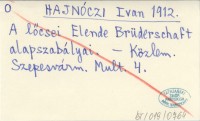 O HAJNÓCZI Ivan 1912.
A lőcsei Elende Brüderschaft
alapszabályai. – Közlem.
Szepesvárm. Mult. 4.